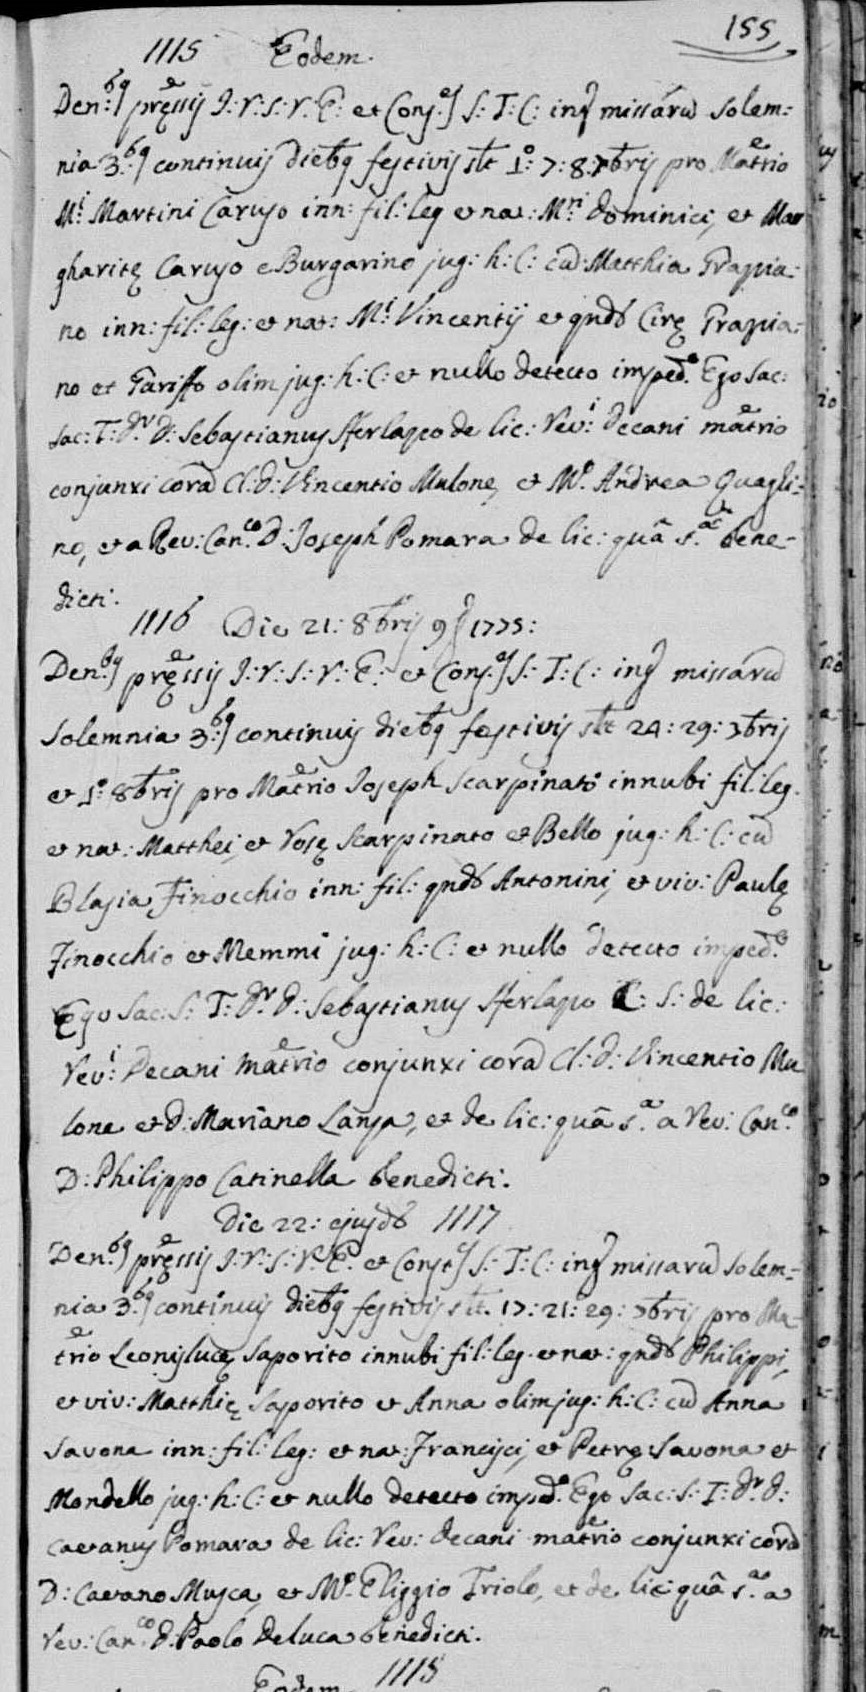 155
1115 Eodem.
Den:bq pręssis J: V: S: V: E: et Conj:es S: T: C: inq missarũ solem:
nia 3:bq continuis diebq festivis slt 1º: 7: 8: 7bris pro Matrio
Mi Martini Caruso inn: fil: leg et nat: Mri Dominici, et Mar
gharitę Caruso e Burgarino jug: h: C: cũ Matthia Trapia:
no inn: fil: leg: et nat: Mi Vincentij et qndb Cirę Trapia:
no et Tariffo olim jug: h: C: et nullo detecto imped.º Ego Sac:
Sac: T: Dr D: Sebastianus Sferlazzo de lic: Revi: Decani matrio
conjunxi corã Cl: D: Vincentio Mulone, et Mº. Andrea Quagli:
no, et a Rev: Can:co D: Joseph Pomara de lic: quã s.a bene-
dicti.
1116 Die 21: 8bris 9 1775:
Den:bq pręssis J: V: S: V: E: et Conj:es S: T: C: inq missarũ
solemnia 3:bq continuis diebq festivis slt 24: 29: 7bris
et 1º: 8bris pro Matrio Joseph Scarpinato innubi fil: leg.
et nat: Matthei, et Rosę Scarpinato et Bello jug: h: C: cũ
Blasia Finocchio inn: fil: qndb Antonini, et viv: Paulę
Finocchio et Memmi jug: h: C: et nullo detecto imped.º
Ego Sac: S: T: Dr D: Sebastianus Sferlazzo C: S: de lic:
Revi: Decani matrio conjunxi corã Cl: D: Vincentio Mu
lone et D: Mariano Lanza, et de lic: quã s.a a Rev: Can:co
D: Philippo Catinella benedicti.
Die 22: ejusdb 1117
Den:bq pręssis J: V: S: V: E: et Conj:es S: T: C: inq missarũ solem:
nia 3:bq continuis diebq festivis slt. 17: 21: 29: 7bris pro Ma-
trio Leonis lucę Saporito innubi fil: leg. et nat: qndb Philippi,
et viv: Matthię Saporito et Anna olim jug: h: C: cũ Anna
Savona inn: fil: leg: et nat: Francisci, et Petrę Savona et
Mondello jug: h: C: et nullo detecto impdº. Ego Sac: S: T: Dr D:
Caetanus Pomara de lic: Rev: Decani matrio conjunxi corã
D: Caetano Musca, et Mº. Eliggio Triolo, et de lic: quã s.a a
Rev: Can:co D: Paolo Deluca benedicti.
Eodem 1118